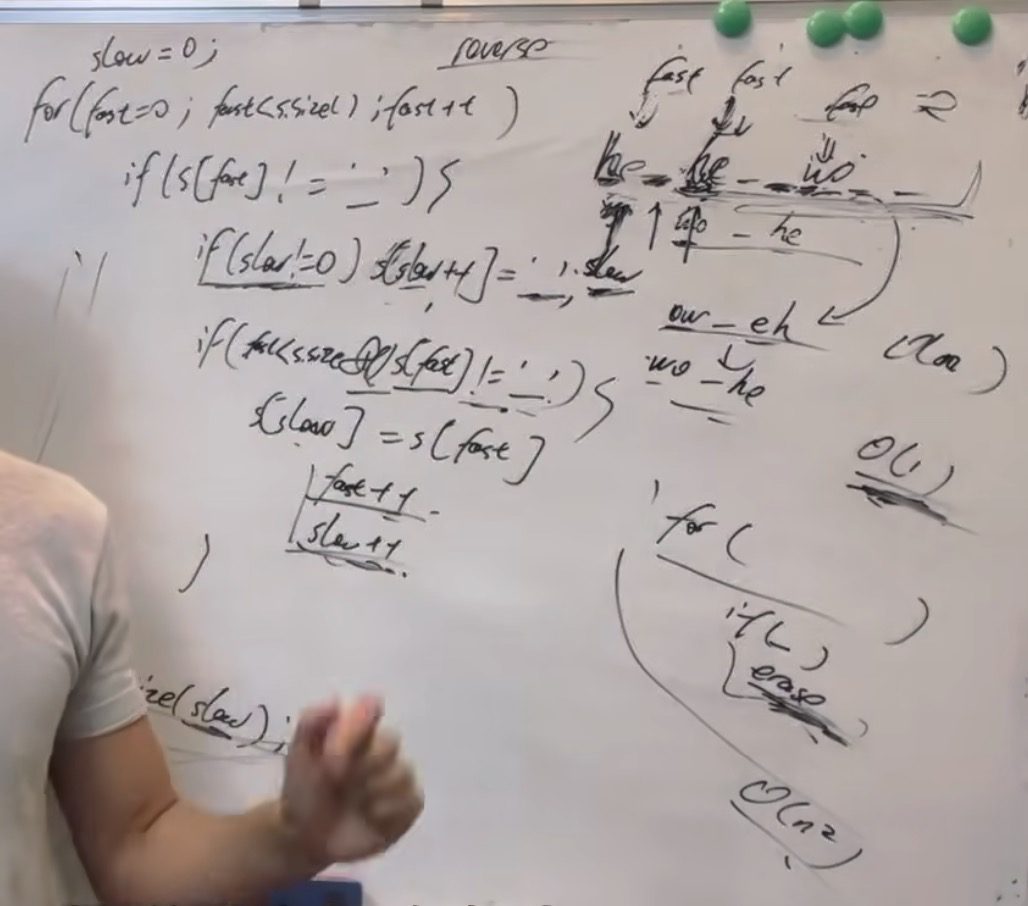 slow = 0;
reverse
for(fast=0; fast<s.size(); fast++)
if(s[fast] != '_'){
if(slow!=0) s[slow++] = '_';
slow
if(fast<s.size() && s[fast] != '_'){
s[slow] = s[fast]
fast++
slow++
}
ize(slow);
fast fast
he _ he _ wo _
wo _ he
ow _ eh
wo _ he
O(1)
for( )
if( )
erase
O(n2)